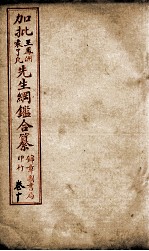 加批王鳳洲袁了凡先生綱鑑合纂
錦章圖書局
印行
卷十